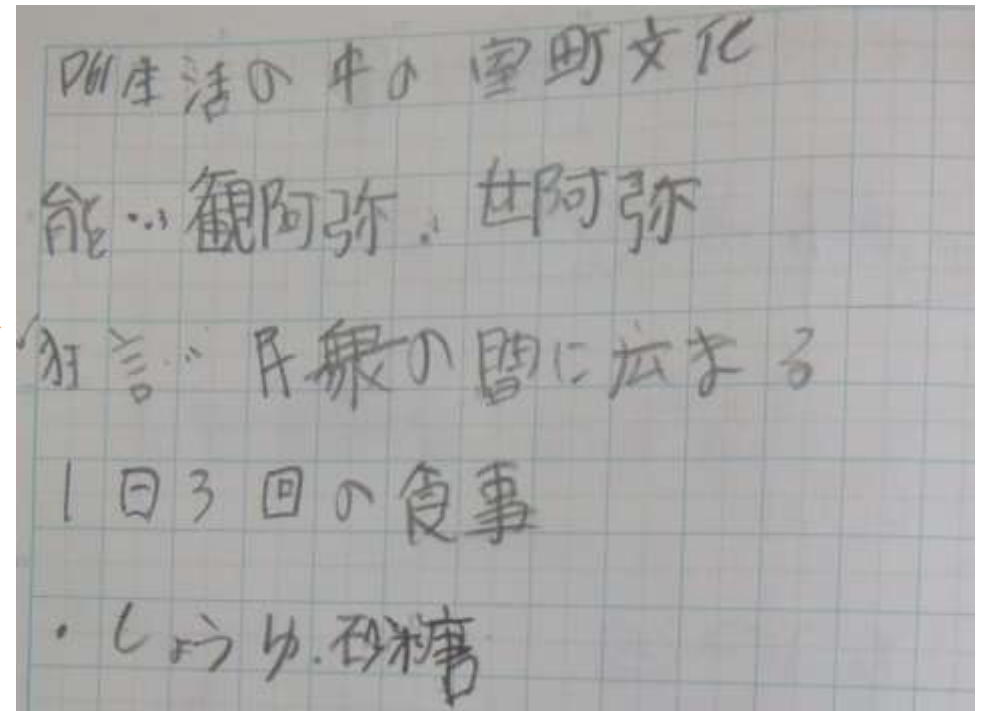 P61生活の中の室町文化
能…観阿弥、世阿弥
狂言…民衆の間に広まる
1日3回の食事
・しょうゆ、砂糖